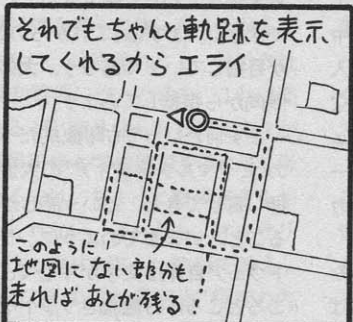 それでもちゃんと軌跡を表示
してくれるからエライ
このように
地図にない部分も
走ればあとが残る!